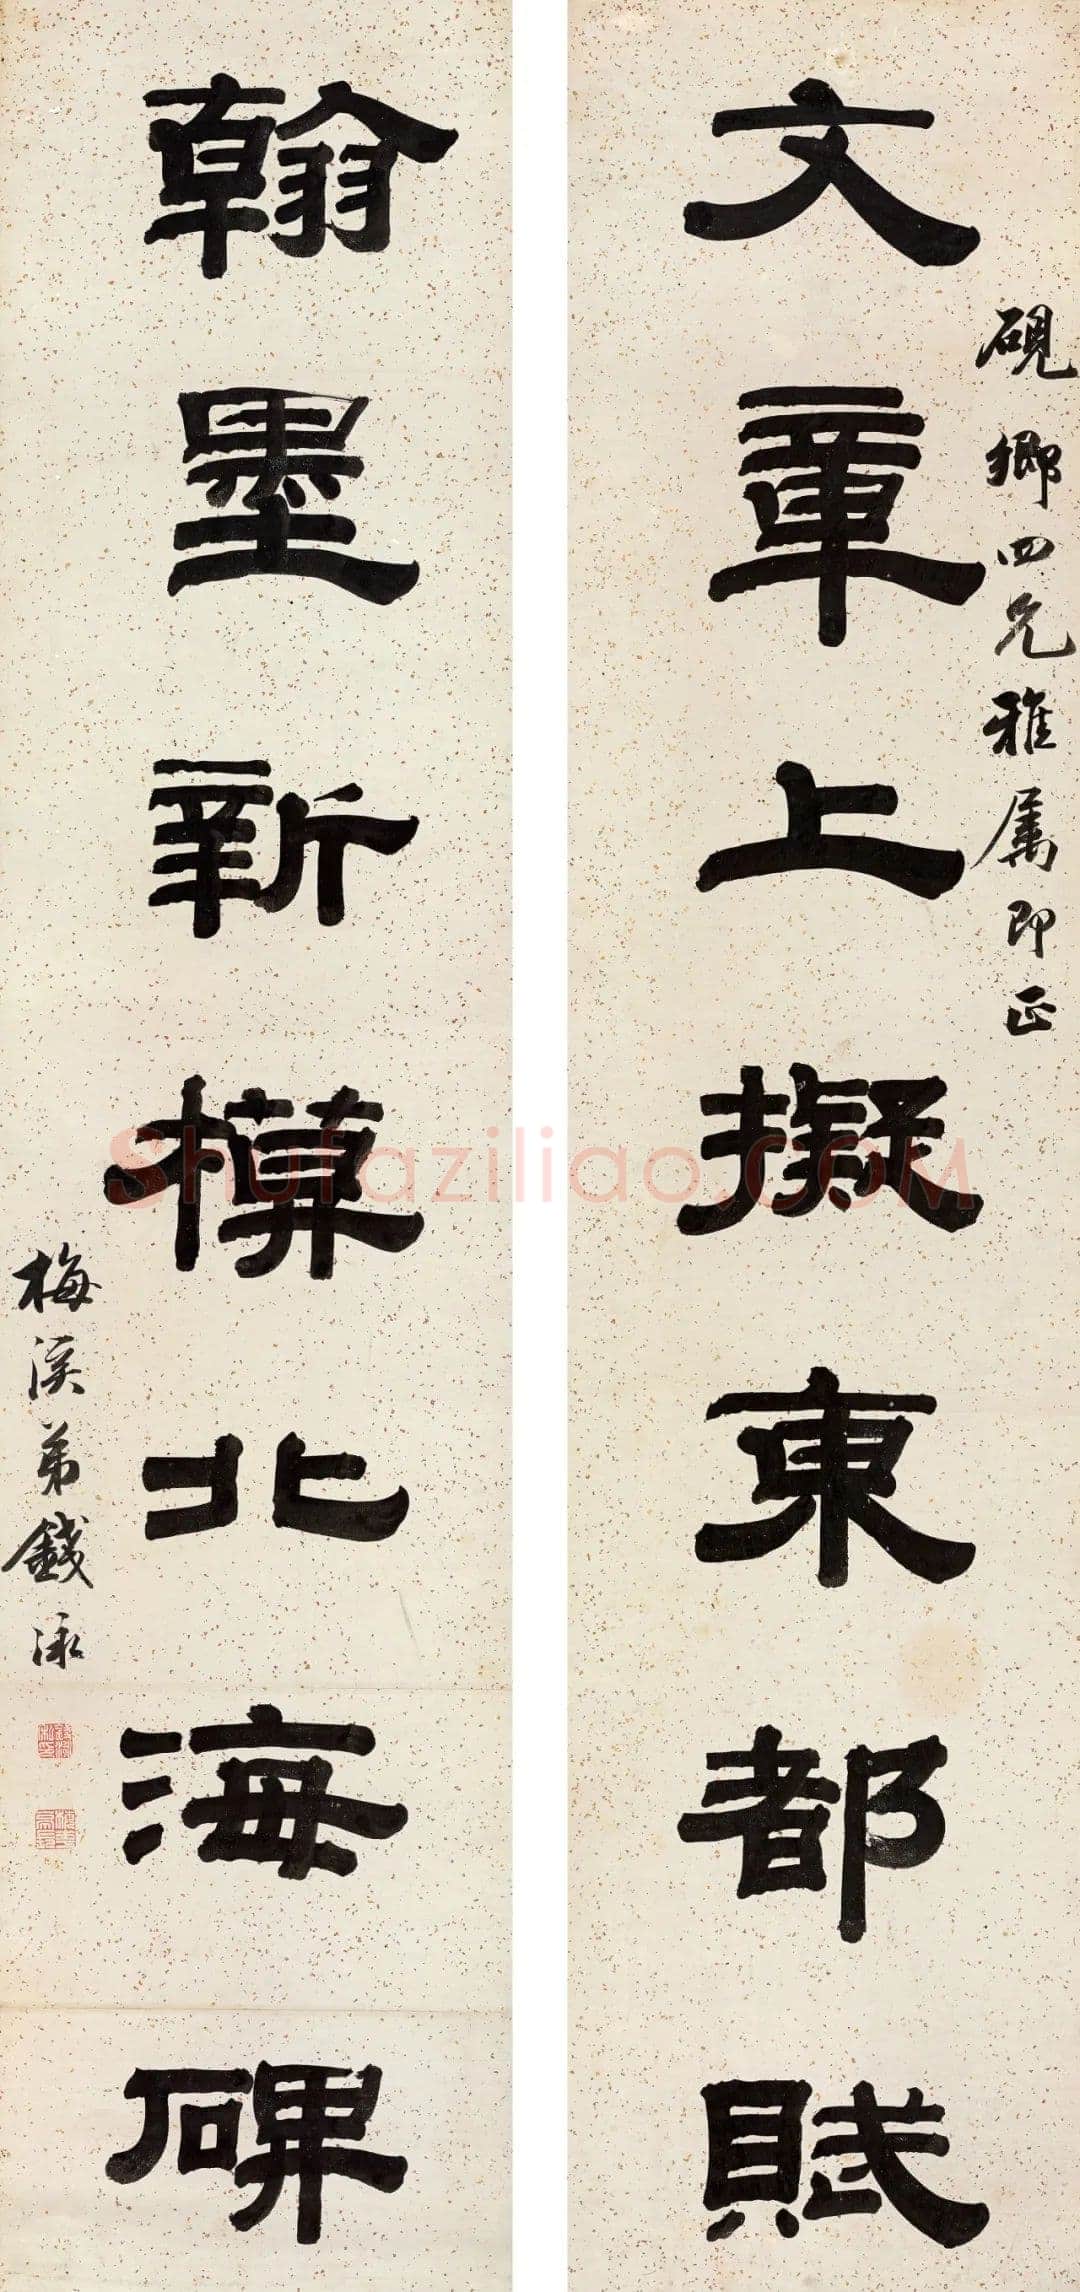 硯卿四兄雅属即正
文章上擬東都賦
翰墨新橅北海碑
梅溪弟錢泳
Shufaziliao.COM